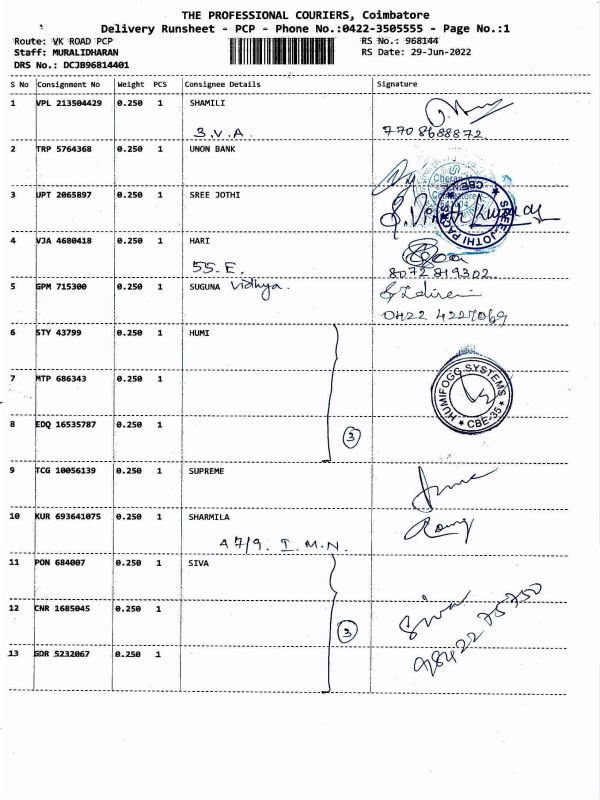 THE PROFESSIONAL COURIERS, Coimbatore
Delivery Runsheet - PCP - Phone No.:0422-3505555 - Page No.:1
Route: VK ROAD PCP RS No.: 968144
Staff: MURALIDHARAN RS Date: 29-Jun-2022
DRS No.: DCJB96814401
S No Consignment No Weight PCS Consignee Details Signature
1 VPL 213504429 0.250 1 SHAMILI
3.V.A. 7708688872
2 TRP 5764368 0.250 1 UNON BANK
3 UPT 2065897 0.250 1 SREE JOTHI
SREE JOTHI
4 VJA 4680418 0.250 1 HARI
55.E. 8072819302
5 GPM 715300 0.250 1 SUGUNA Vidhya.
0422 4227069
6 STY 43799 0.250 1 HUMI
7 MTP 686343 0.250 1
HUMIFOGG SYSTEMS
* CBE-35 *
8 EDQ 16535787 0.250 1
3
9 TCG 10056139 0.250 1 SUPREME
10 KUR 693641075 0.250 1 SHARMILA
A7/9. I.M.N.
11 PON 684007 0.250 1 SIVA
12 CNR 1685045 0.250 1
3 Siva
98422 75750
13 GDR 5232067 0.250 1